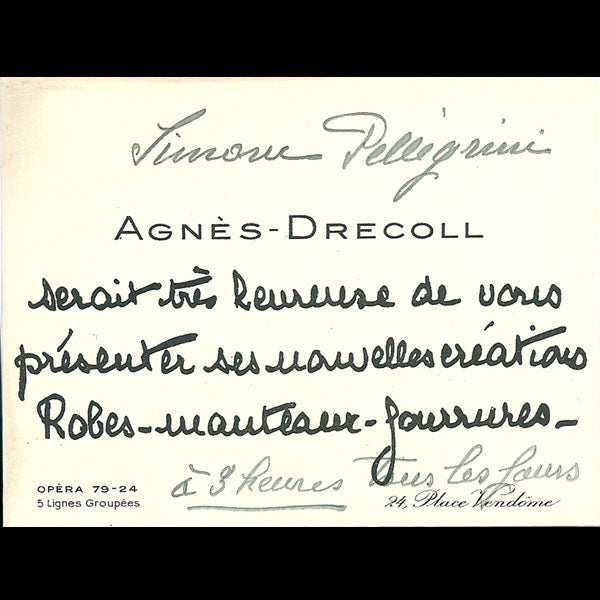 Simone Pellégrini
AGNÈS-DRECOLL
serait très heureuse de vous
présenter ses nouvelles créations
Robes-manteaux-fourrures-
à 3 heures tous les jours
OPÉRA 79-24
5 Lignes Groupées
24, Place Vendôme